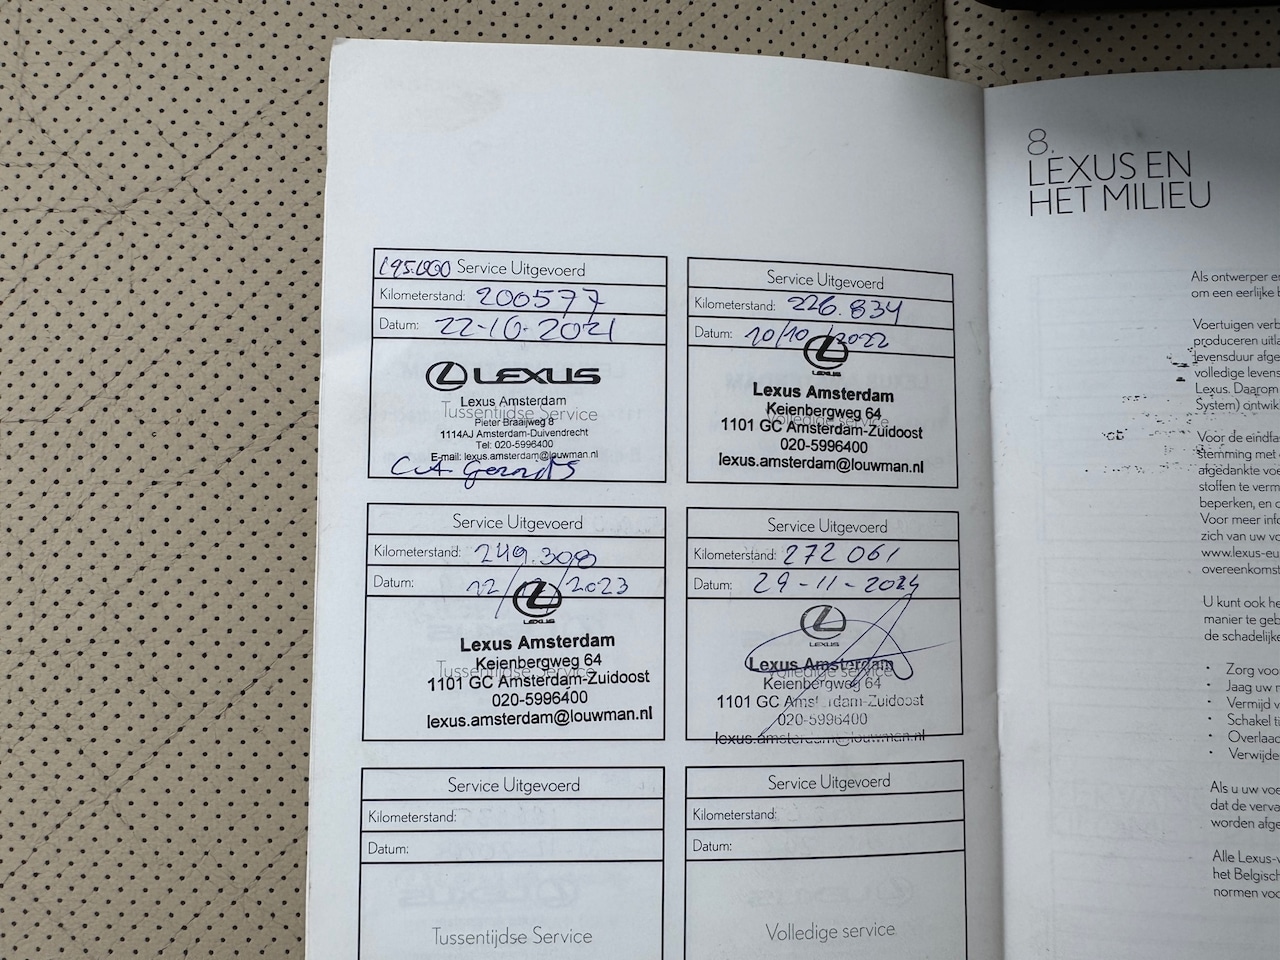 195.000 Service Uitgevoerd
Kilometerstand: 200577
Datum: 22-10-2021
LEXUS
Lexus Amsterdam
Tussentijdse Service
Pieter Braaijweg 8
1114AJ Amsterdam-Duivendrecht
Tel: 020-5996400
E-mail: lexus.amsterdam@louwman.nl
Service Uitgevoerd
Kilometerstand: 226.834
Datum: 10/10/2022
LEXUS
Lexus Amsterdam
Keienbergweg 64
Volledige service
1101 GC Amsterdam-Zuidoost
020-5996400
lexus.amsterdam@louwman.nl
Service Uitgevoerd
Kilometerstand: 249.308
Datum: 12/ /2023
LEXUS
Lexus Amsterdam
Keienbergweg 64
Tussentijdse Service
1101 GC Amsterdam-Zuidoost
020-5996400
lexus.amsterdam@louwman.nl
Service Uitgevoerd
Kilometerstand: 272 061
Datum: 29-11-2024
LEXUS
Lexus Amsterdam
Volledige service
Keienbergweg 64
1101 GC Amsterdam-Zuidoost
020-5996400
lexus.amsterdam@louwman.nl
Service Uitgevoerd
Kilometerstand:
Datum:
Tussentijdse Service
Service Uitgevoerd
Kilometerstand:
Datum:
Volledige service
8.
LEXUS EN
HET MILIEU
Als ontwerper
om een eerlijke
Voertuigen
produceren
levensduur
volledige
Lexus. Daarom
System)
Voor de
stemming met
afgedankte
stoffen te
beperken, en
Voor meer
zich van uw
www.lexus-eu
U kunt ook
manier te
de schadelijke
• Zorg
• Jaag uw
• Vermijd
• Schakel
•
• 
Als u uw
dat de
worden
Alle
het
normen